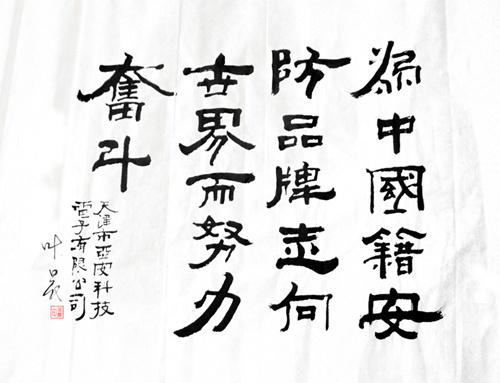 為中國籍安
防品牌走向
世界而努力
奮斗
天津市亞安科技
電子有限公司
叶